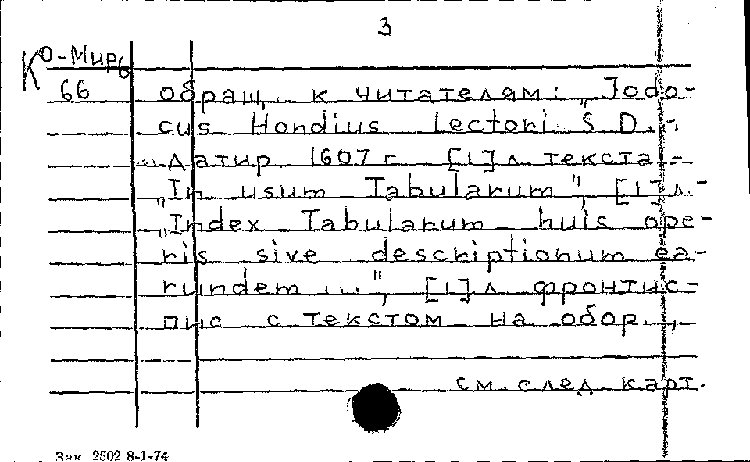 3
Ko-Мир6
66 обращ. к читателям: „Jodo-
cus Hondius Lectori S. D.",
датир 1607 г. [1] л. текста -
„In usum Tabularum", [1] л. -
„Index Tabularum huis ope-
ris sive descriptionum ea-
rundem ...", [1] л фронтис-
пис с текстом на обор.,
см след карт.
Зак. 2502 8-1-74